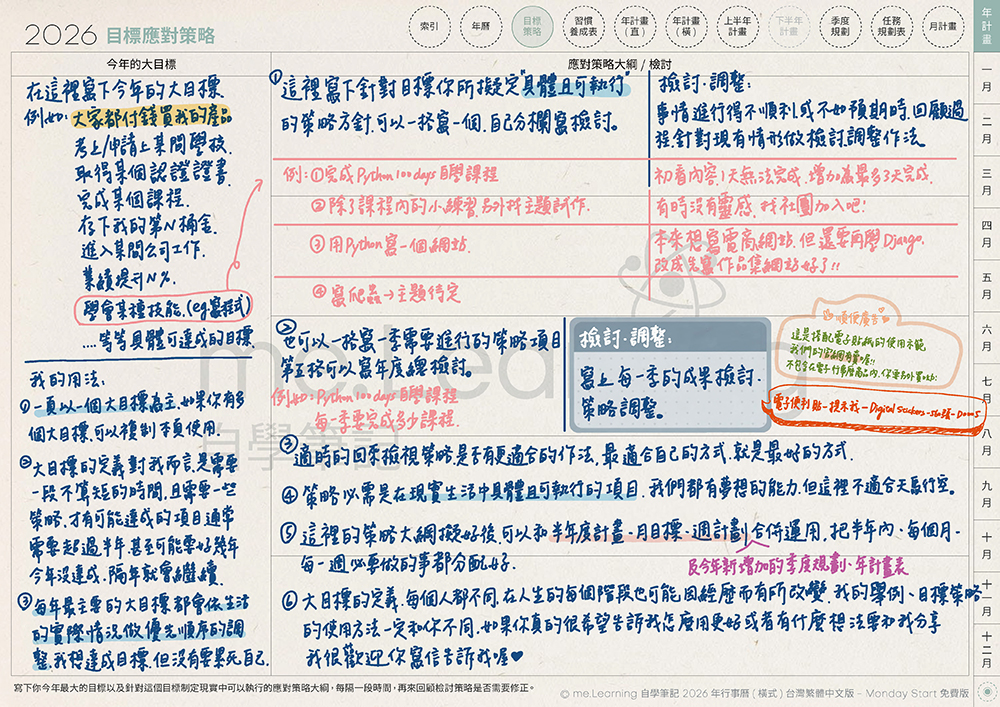 2026 目標應對策略
索引
年曆
目標
策略
習慣
養成表
年計畫
(直)
年計畫
(橫)
上半年
計畫
下半年
計畫
季度
規劃
任務
規劃表
月計畫
年計畫
一月
二月
三月
四月
五月
六月
七月
八月
九月
十月
十一月
十二月
今年的大目標
應對策略大綱 / 檢討
在這裡寫下今年的大目標
例如:大家都付錢買我的產品
考上/申請上某間學校.
取得某個認證證書.
完成某個課程.
存下我的第N桶金.
進入某間公司工作.
業績提升N%.
學會某種技能.(eg.寫程式)
....等等具體可達成的目標
我的用法:
①一頁以一個大目標為主.如果你有多
個大目標,可以複製本頁使用.
②大目標的定義對我而言,是需要
一段不算短的時間,且需要一些
策略,才有可能達成的項目通常
需要超過半年,甚至可能要好幾年
今年沒達成,隔年就會繼續.
③每年最主要的大目標都會依生活
的實際情況做優先順序的調
整,我想達成目標,但沒有要累死自己.
①這裡寫下針對目標你所擬定"具體且可執行"
的策略方針,可以一格寫一個,自己分欄寫檢討。
檢討·調整:
事情進行得不順利或不如預期時,回顧過
程,針對現有情形做檢討調整作法。
例:①完成Python 100 days 自學課程
初看內容1天無法完成,增加為最多3天完成.
②除了課程內的小練習,另外找主題試作.
有時沒有靈感,找社團加入吧!
③用Python寫一個網站.
本來想寫電商網站,但還要再學Django.
改成先寫作品集網站好了!!
④寫爬蟲→主題待定
②也可以一格寫一季需要進行的策略項目
第五格可以寫年度總檢討。
例如:Python 100 days 自學課程
每一季要完成多少課程.
檢討·調整:
寫上每一季的成果檢討·
策略調整。
順便廣告
這是搭配電子貼紙的使用示範
我們的官網有賣喔!!
不包含在電子行事曆商品內,你需另外買地!
電子便利貼-提示我-Digital Stickers-
me.Learning
自學筆記
③適時的回來檢視策略是否有更適合的作法,最適合自己的方式,就是最好的方式.
④策略必需是在現實生活中具體且可執行的項目.我們都有夢想的能力,但這裡不適合天馬行空。
⑤這裡的策略大綱擬好後,可以和半年度計畫·月目標·週計劃合併運用,把半年內、每個月·
每一週必要做的事都分配好.
及今年新增加的季度規劃、年計畫表
⑥大目標的定義,每個人都不同,在人生的每個階段也可能因經歷而有所改變,我的舉例、目標策略
的使用方法一定和你不同,如果你真的很希望告訴我怎麼用更好或者有什麼想法要和我分享
我很歡迎你寫信告訴我喔♥
寫下你今年最大的目標以及針對這個目標制定現實中可以執行的應對策略大綱,每隔一段時間,再來回顧檢討策略是否需要修正。
© me.Learning 自學筆記 2026 年行事曆 ( 橫式 ) 台灣繁體中文版 – Monday Start 免費版